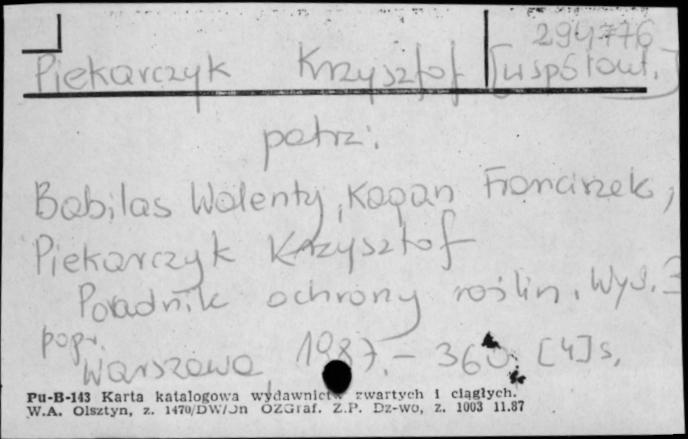 294776
Piekarczyk Krzysztof [współaut.]
patrz:
Babilas Walenty, Kagan Franciszek,
Piekarczyk Krzysztof
Poradnik ochrony roślin. Wyd. 3
popr.
Warszawa 1987.- 360, [4] s.
Pu-B-143 Karta katalogowa wydawnictw zwartych i ciągłych.
W.A. Olsztyn, z. 1470/DW/Jn OZGraf. Z.P. Dz-wo, z. 1003 11.87